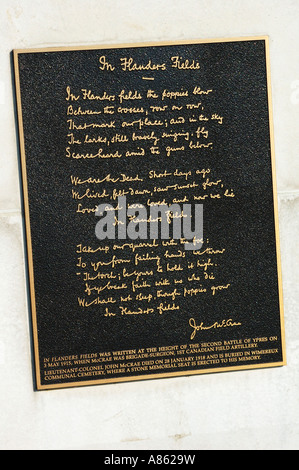 In Flanders Fields
In Flanders fields the poppies blow
Between the crosses, row on row,
That mark our place; and in the sky
The larks, still bravely singing, fly
Scarce heard amid the guns below.
We are the Dead. Short days ago
We lived, felt dawn, saw sunset glow,
Loved and were loved, and now we lie
In Flanders fields.
Take up our quarrel with the foe:
To you from failing hands we throw
The torch; be yours to hold it high.
If ye break faith with us who die
We shall not sleep, though poppies grow
In Flanders fields
John McCrae
IN FLANDERS FIELDS WAS WRITTEN AT THE HEIGHT OF THE SECOND BATTLE OF YPRES ON
3 MAY 1915, WHEN McCRAE WAS BRIGADE-SURGEON, 1ST CANADIAN FIELD ARTILLERY.
LIEUTENANT COLONEL JOHN McCRAE DIED ON 28 JANUARY 1918 AND IS BURIED IN WIMEREUX
COMMUNAL CEMETERY, WHERE A STONE MEMORIAL SEAT IS ERECTED TO HIS MEMORY.
alamy
A8629W
www.alamy.com